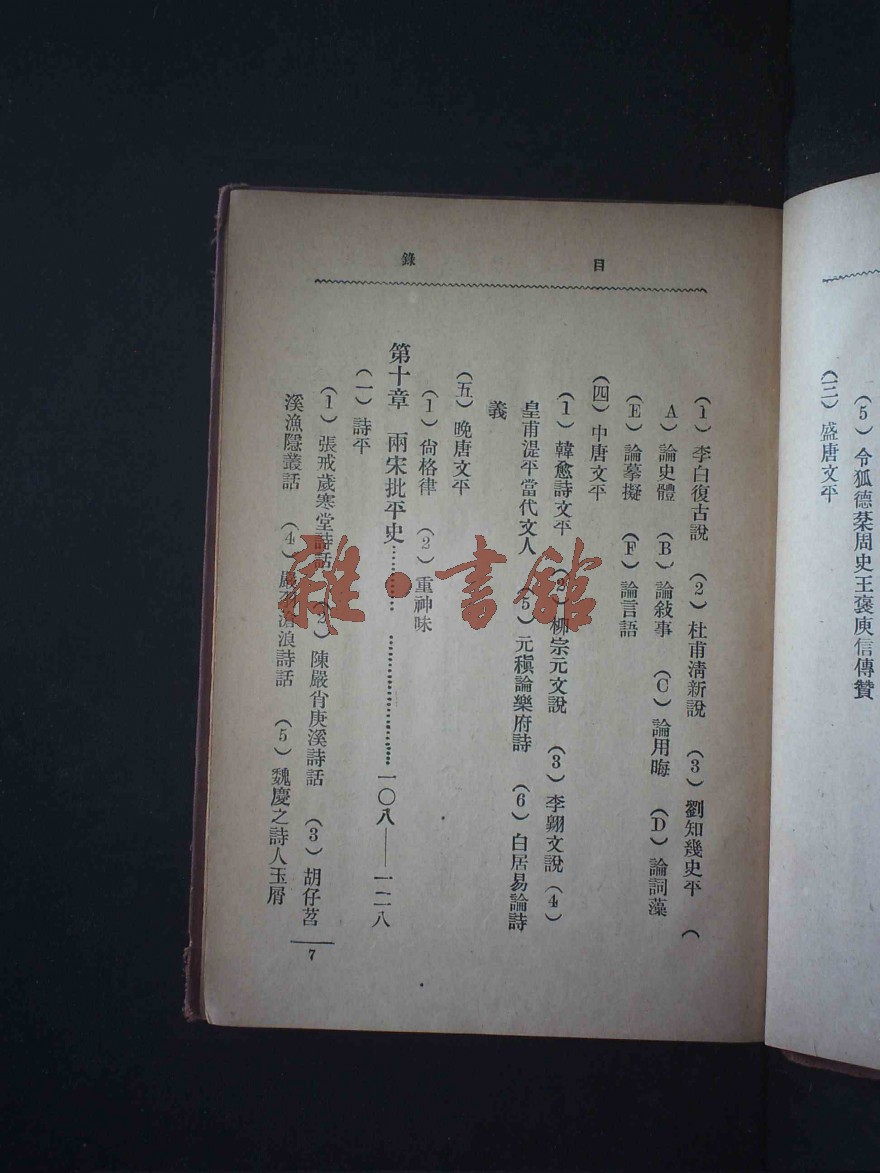 (5)令狐德棻周史王褒庾信傳贊
(三)盛唐文平
目錄
(1)李白復古說 (2)杜甫清新說 (3)劉知幾史平 (
A)論史體 (B)論敍事 (C)論用晦 (D)論詞藻
(E)論摹擬 (F)論言語
(四)中唐文平
(1)韓愈詩文平 (2)柳宗元文說 (3)李翺文說(4)
皇甫湜平當代文人 (5)元稹論樂府詩 (6)白居易論詩
義
(五)晚唐文平
(1)尚格律 (2)重神味
第十章 兩宋批平史…………………………一〇八——一二八
(一)詩平
(1)張戒歲寒堂詩話 (2)陳巖肖庚溪詩話 (3)胡仔苕
溪漁隱叢話 (4)嚴羽滄浪詩話 (5)魏慶之詩人玉屑
7
雜·書館